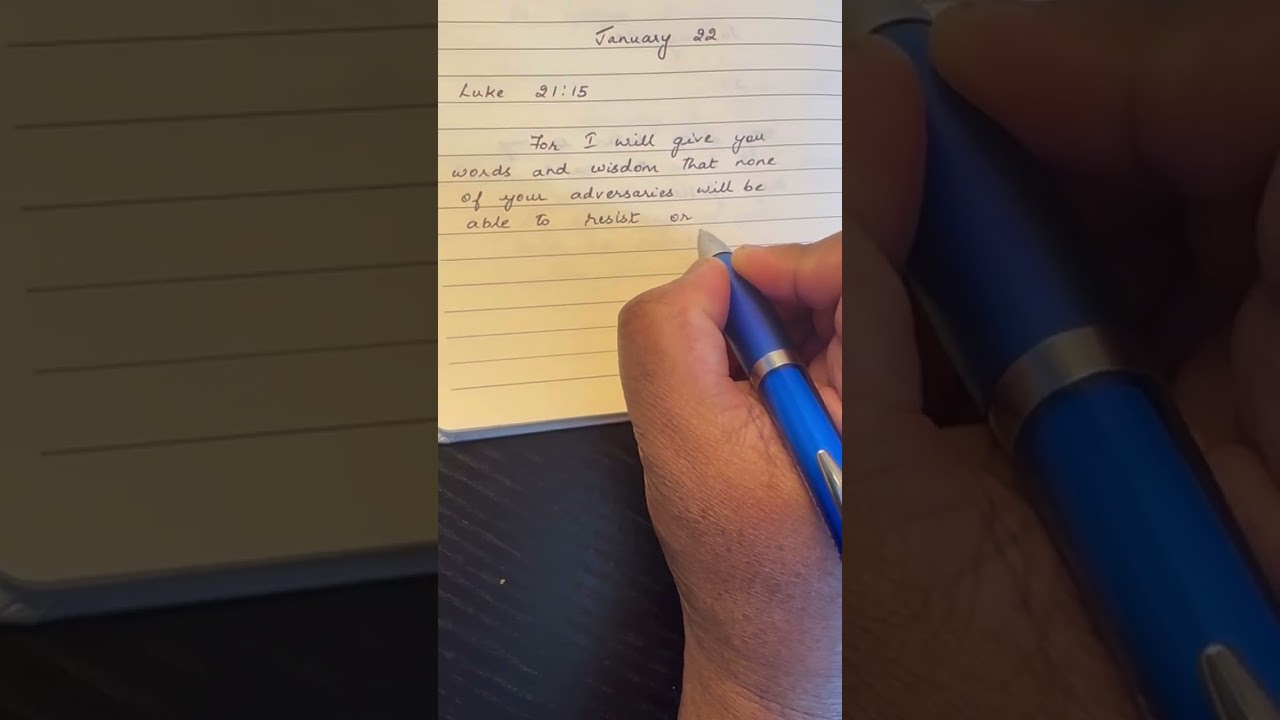 January 22
Luke 21:15
For I will give you
words and wisdom that none
of your adversaries will be
able to resist or